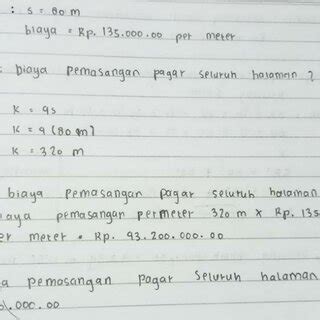 : s = 80 m
biaya = Rp. 135.000.00 per meter
: biaya pemasangan pagar seluruh halaman ?
K = 4s
K = 4 (80 m)
K = 320 m
biaya pemasangan pagar seluruh halaman
aya pemasangan permeter 320 m x Rp. 135
er meter = Rp. 43.200.000.00
a pemasangan pagar seluruh halaman
.000.00